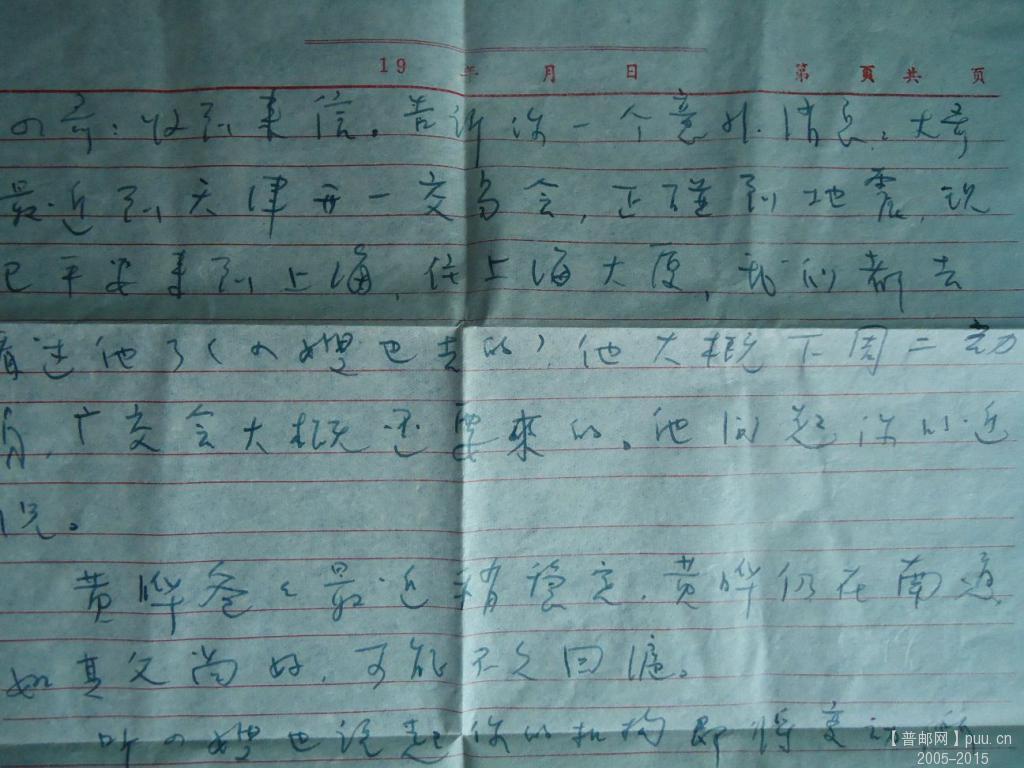 19 年 月 日 第 頁 共 页
哥:收到来信。告诉你一个意外消息,大哥
最近到天津开一交易会,正碰到地震,现
已平安来到上海,住上海大厦,我们都去
看过他了(嫂也去的),他大概下周二动
身,广交会大概还要來的。他问起你的近
况。
黄晔爸〻最近稍稳定,黄晔仍在南通
如其父尚好,可能不久回滬。
听嫂也说起你的机构即将变动
【普邮网】puu.cn
2005-2015